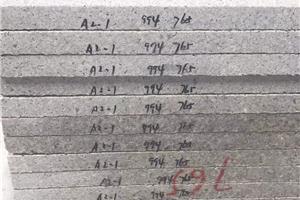 A2-1 994 765
A2-1 994 765
A2-1 994 765
A2-1 994 765
A2-1 994 765
A2-1 994 765
A2-1 994 765
A2-1 994 765
A2-1 994 765
A2-1 994
765